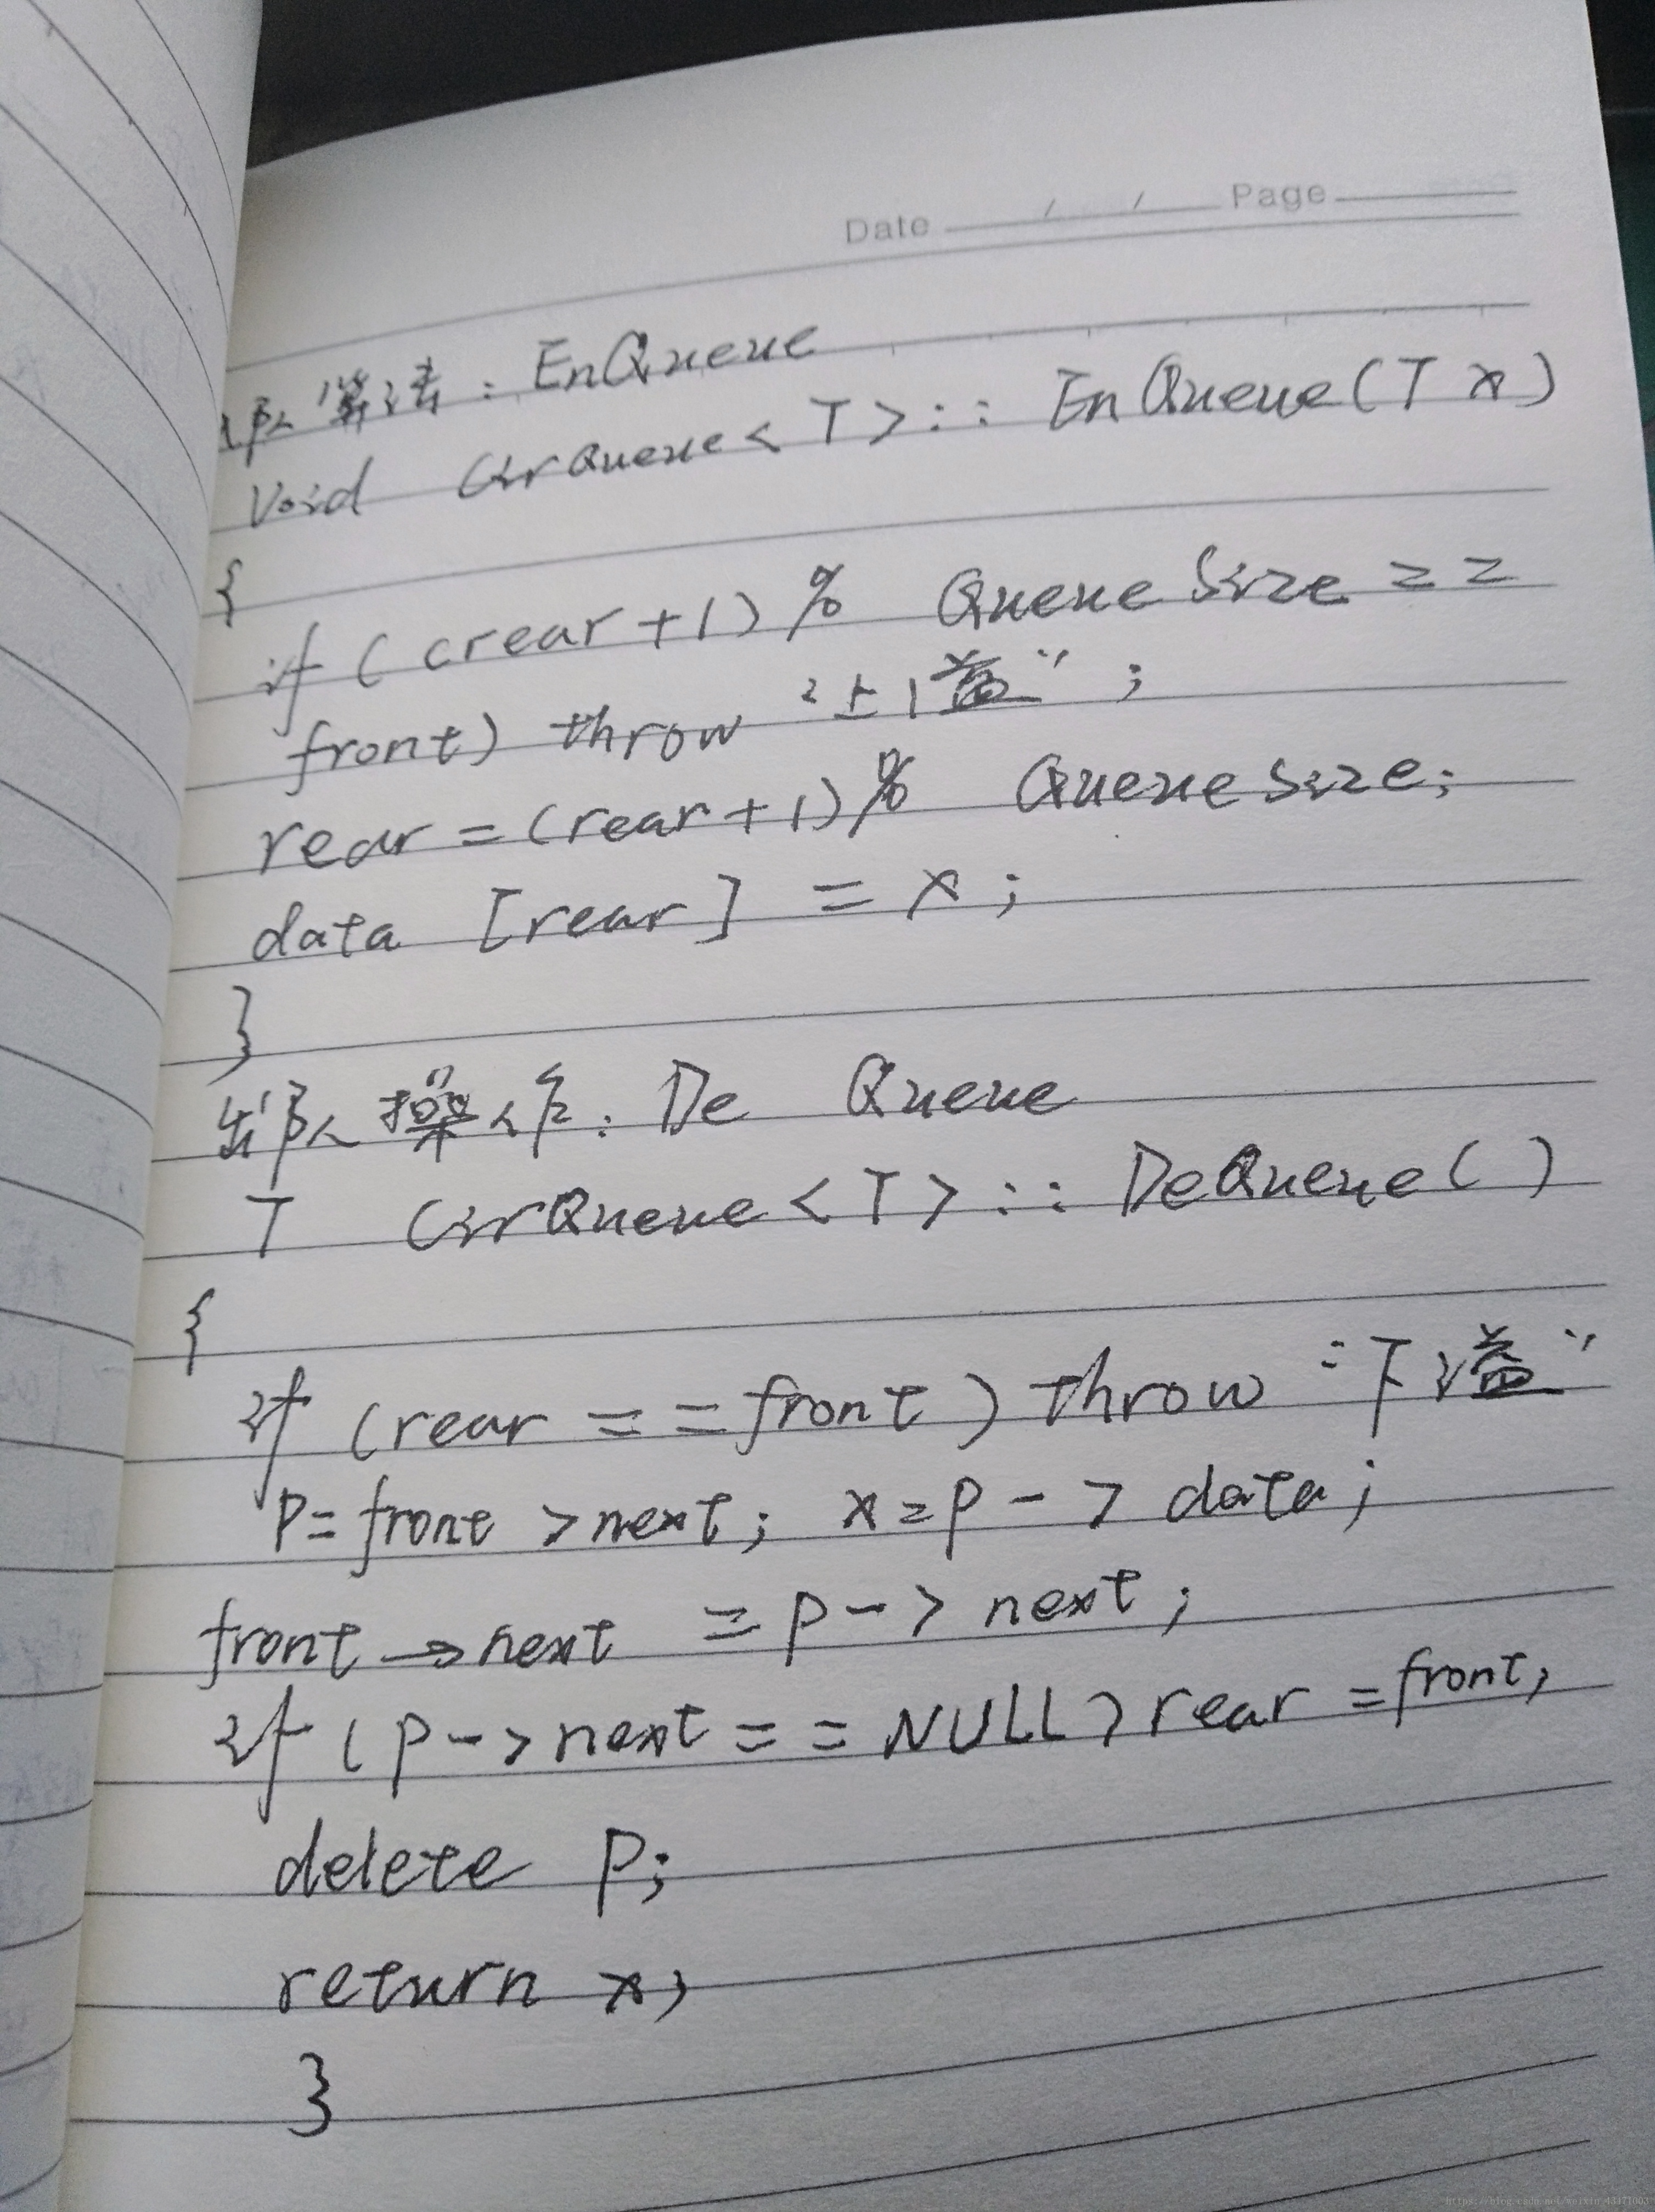 Date / / Page
入队算法：EnQueue
void CirQueue<T>:: EnQueue(T x)
{
if ((rear+1)% QueueSize ==
front) throw "上溢";
rear=(rear+1)% QueueSize;
data [rear] = x;
}
出队操作：De Queue
T CirQueue<T>:: DeQueue()
{
if (rear == front) throw "下溢"
P=front >next; x=p-> data;
front→next =p-> next;
if (p->next == NULL) rear =front;
delete p;
return x;
}